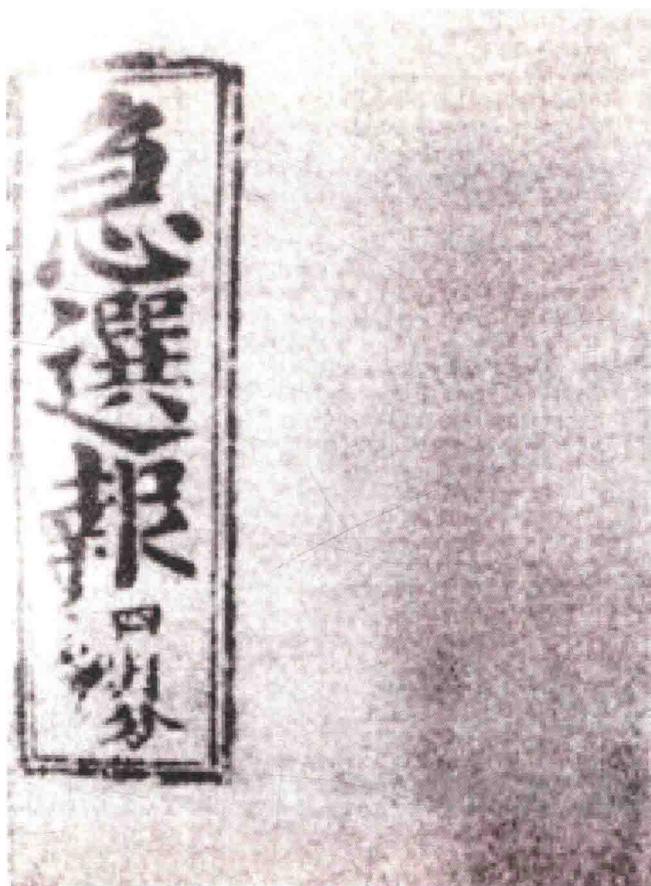 急選報
四川分